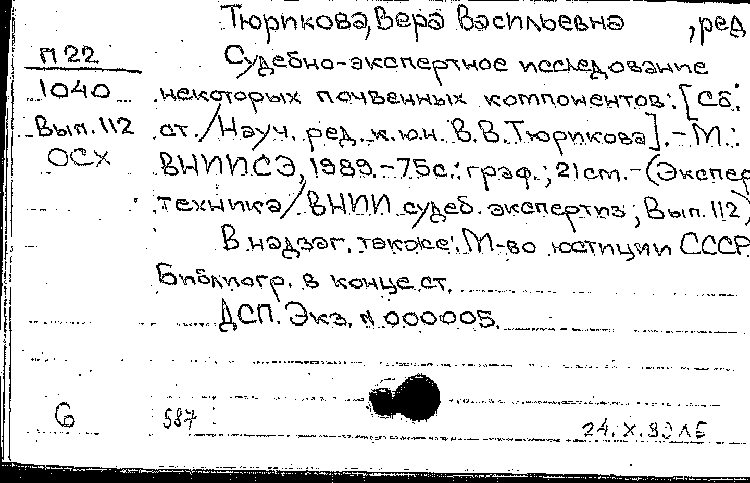 Тюрикова, Вера Васильевна , ред
П 22
1040
Вып. 112
ОСХ
Судебно-экспертное исследование
некоторых почвенных компонентов: [Сб.
ст. / Науч. ред. к.ю.н. В.В. Тюрикова]. - М.:
ВНИИСЭ, 1989. - 75с.: граф.; 21 cm. - (Экспер
техника / ВНИИ судеб. экспертиз; Вып. 112)
В надзаг. также: М-во юстиции СССР.
Библиогр. в конце ст.
ДСП. Экз. N 000005.
6 587